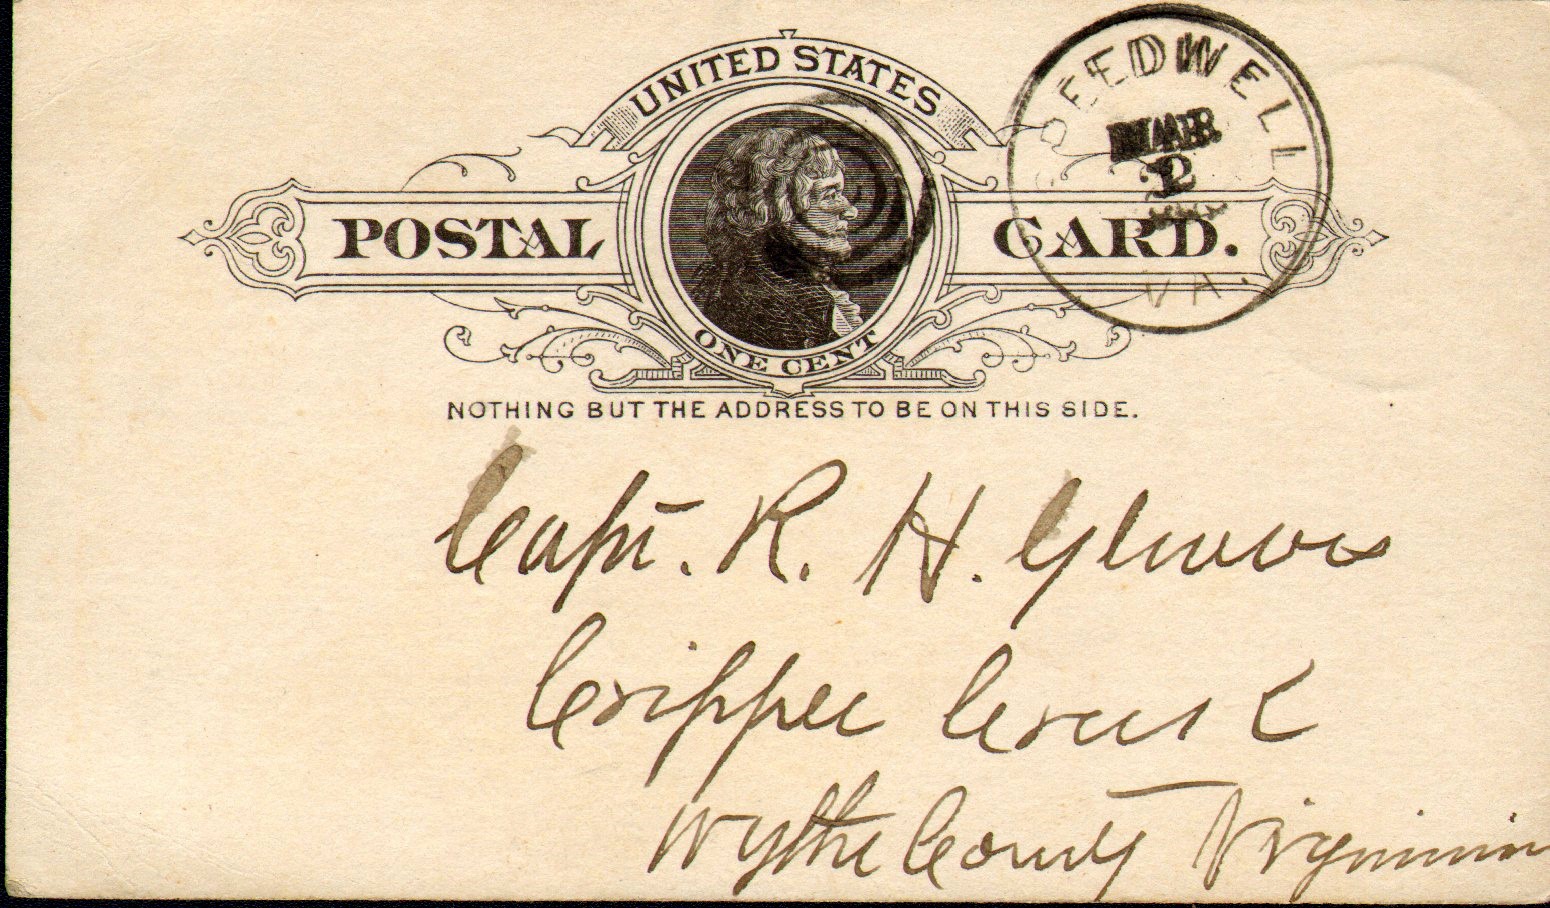 UNITED STATES
POSTAL CARD.
ONE CENT
SEEDWELL
MAR
2
VA.
NOTHING BUT THE ADDRESS TO BE ON THIS SIDE.
Capt. R. H.
Cripple Creek
Wythe County Virginia